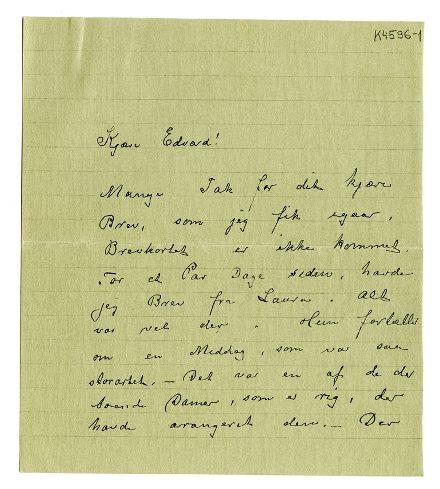 K4596-1
Kjære Edvard!
Mange Tak for dit kjære
Brev, som jeg fik igaar,
Brevkortet er ikke kommet.
For et Par Dage siden, havde
jeg Brev fra Laura. Alt
var vel der. Hun fortalte
om en Middag, som var saa
storartet. – Det var en af de der
boende Damer, som er rig, der
havde arrangeret den. – Der